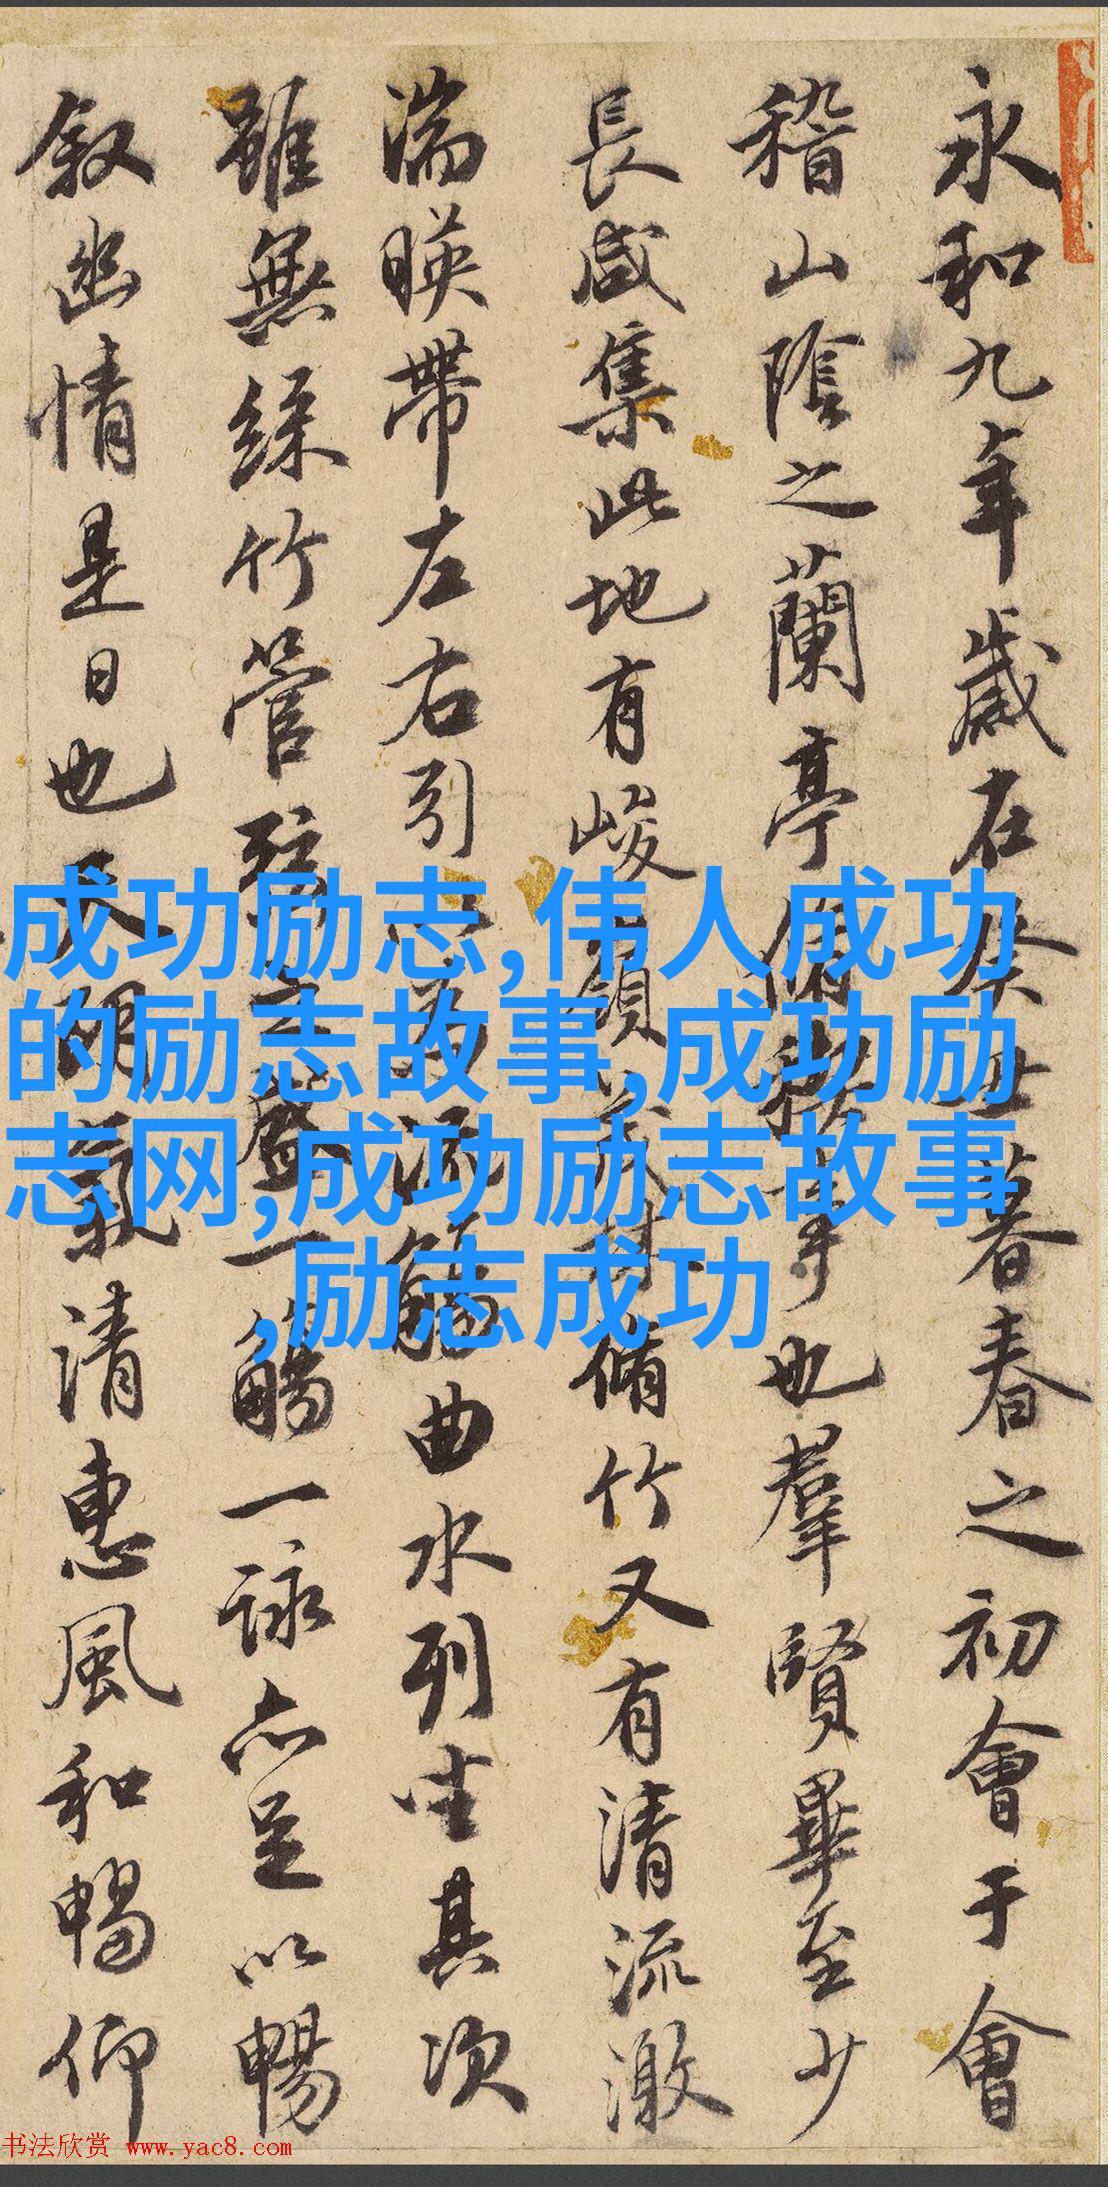 永和九年歲在癸丑暮春之初會于會
稽山陰之蘭亭脩稧事也羣賢畢至少
長咸集此地有峻領茂林脩竹又有清流激
湍暎帶左右引以為流觴曲水列坐其次
雖無絲竹管弦之盛一觴一詠亦足以暢
叙幽情是日也天朗氣清惠風和暢仰
成功励志,伟人成功
的励志故事,成功励
志网,成功励志故事
,励志成功
书法欣赏 www.yac8.com